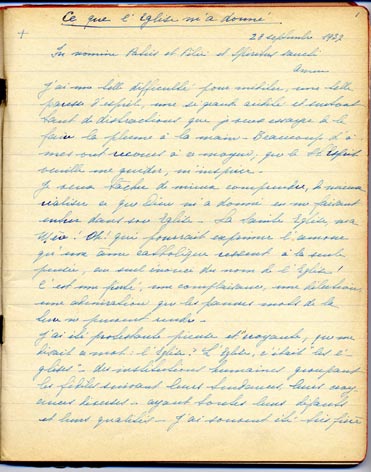 Ce que l'Eglise m'a donné
1
+
29 septembre 1932
In nomine Patris et Filii et Spiritus sancti
Amen
J'ai une telle difficulté pour méditer, une telle
paresse d'esprit, une si grande aridité et surtout
tant de distractions que je veux essayer de le
faire la plume à la main - Beaucoup d'â-
mes ont recours à ce moyen, que le St Esprit
veuille me guider, m'inspirer -
Je veux tâcher de mieux comprendre, de mieux
réaliser ce que Dieu m'a donné en me faisant
entrer dans son Eglise - La Sainte Eglise, ma
Mère! Oh! qui pourrait exprimer l'amour
qu'une âme catholique ressent à la seule
pensée, au seul énoncé du nom de l'Eglise!
C'est une fierté, une complaisance, une dilection,
une admiration que les pauvres mots de la
terre ne peuvent rendre -
J'ai été protestante pieuse et croyante, que me
disait ce mot: l'Eglise? L'Eglise, c'était les é-
glises - des institutions humaines groupant
les fidèles suivant leurs tendances leurs croy-
ances diverses - ayant toutes leurs défauts
et leurs qualités - J'ai souvent été très fière